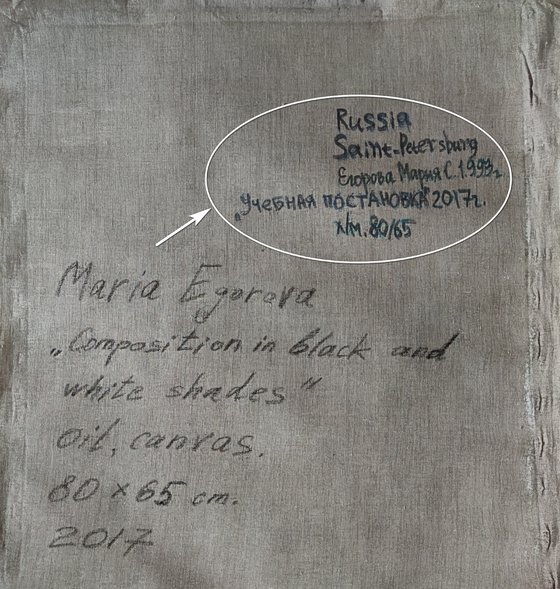 Russia
Saint-Petersburg
Егорова Мария С. 1993г.
„Учебная постановка" 2017г.
х/м. 80/65
Maria Egorova
„Composition in black and
white shades"
oil, canvas.
80 x 65 cm.
2017